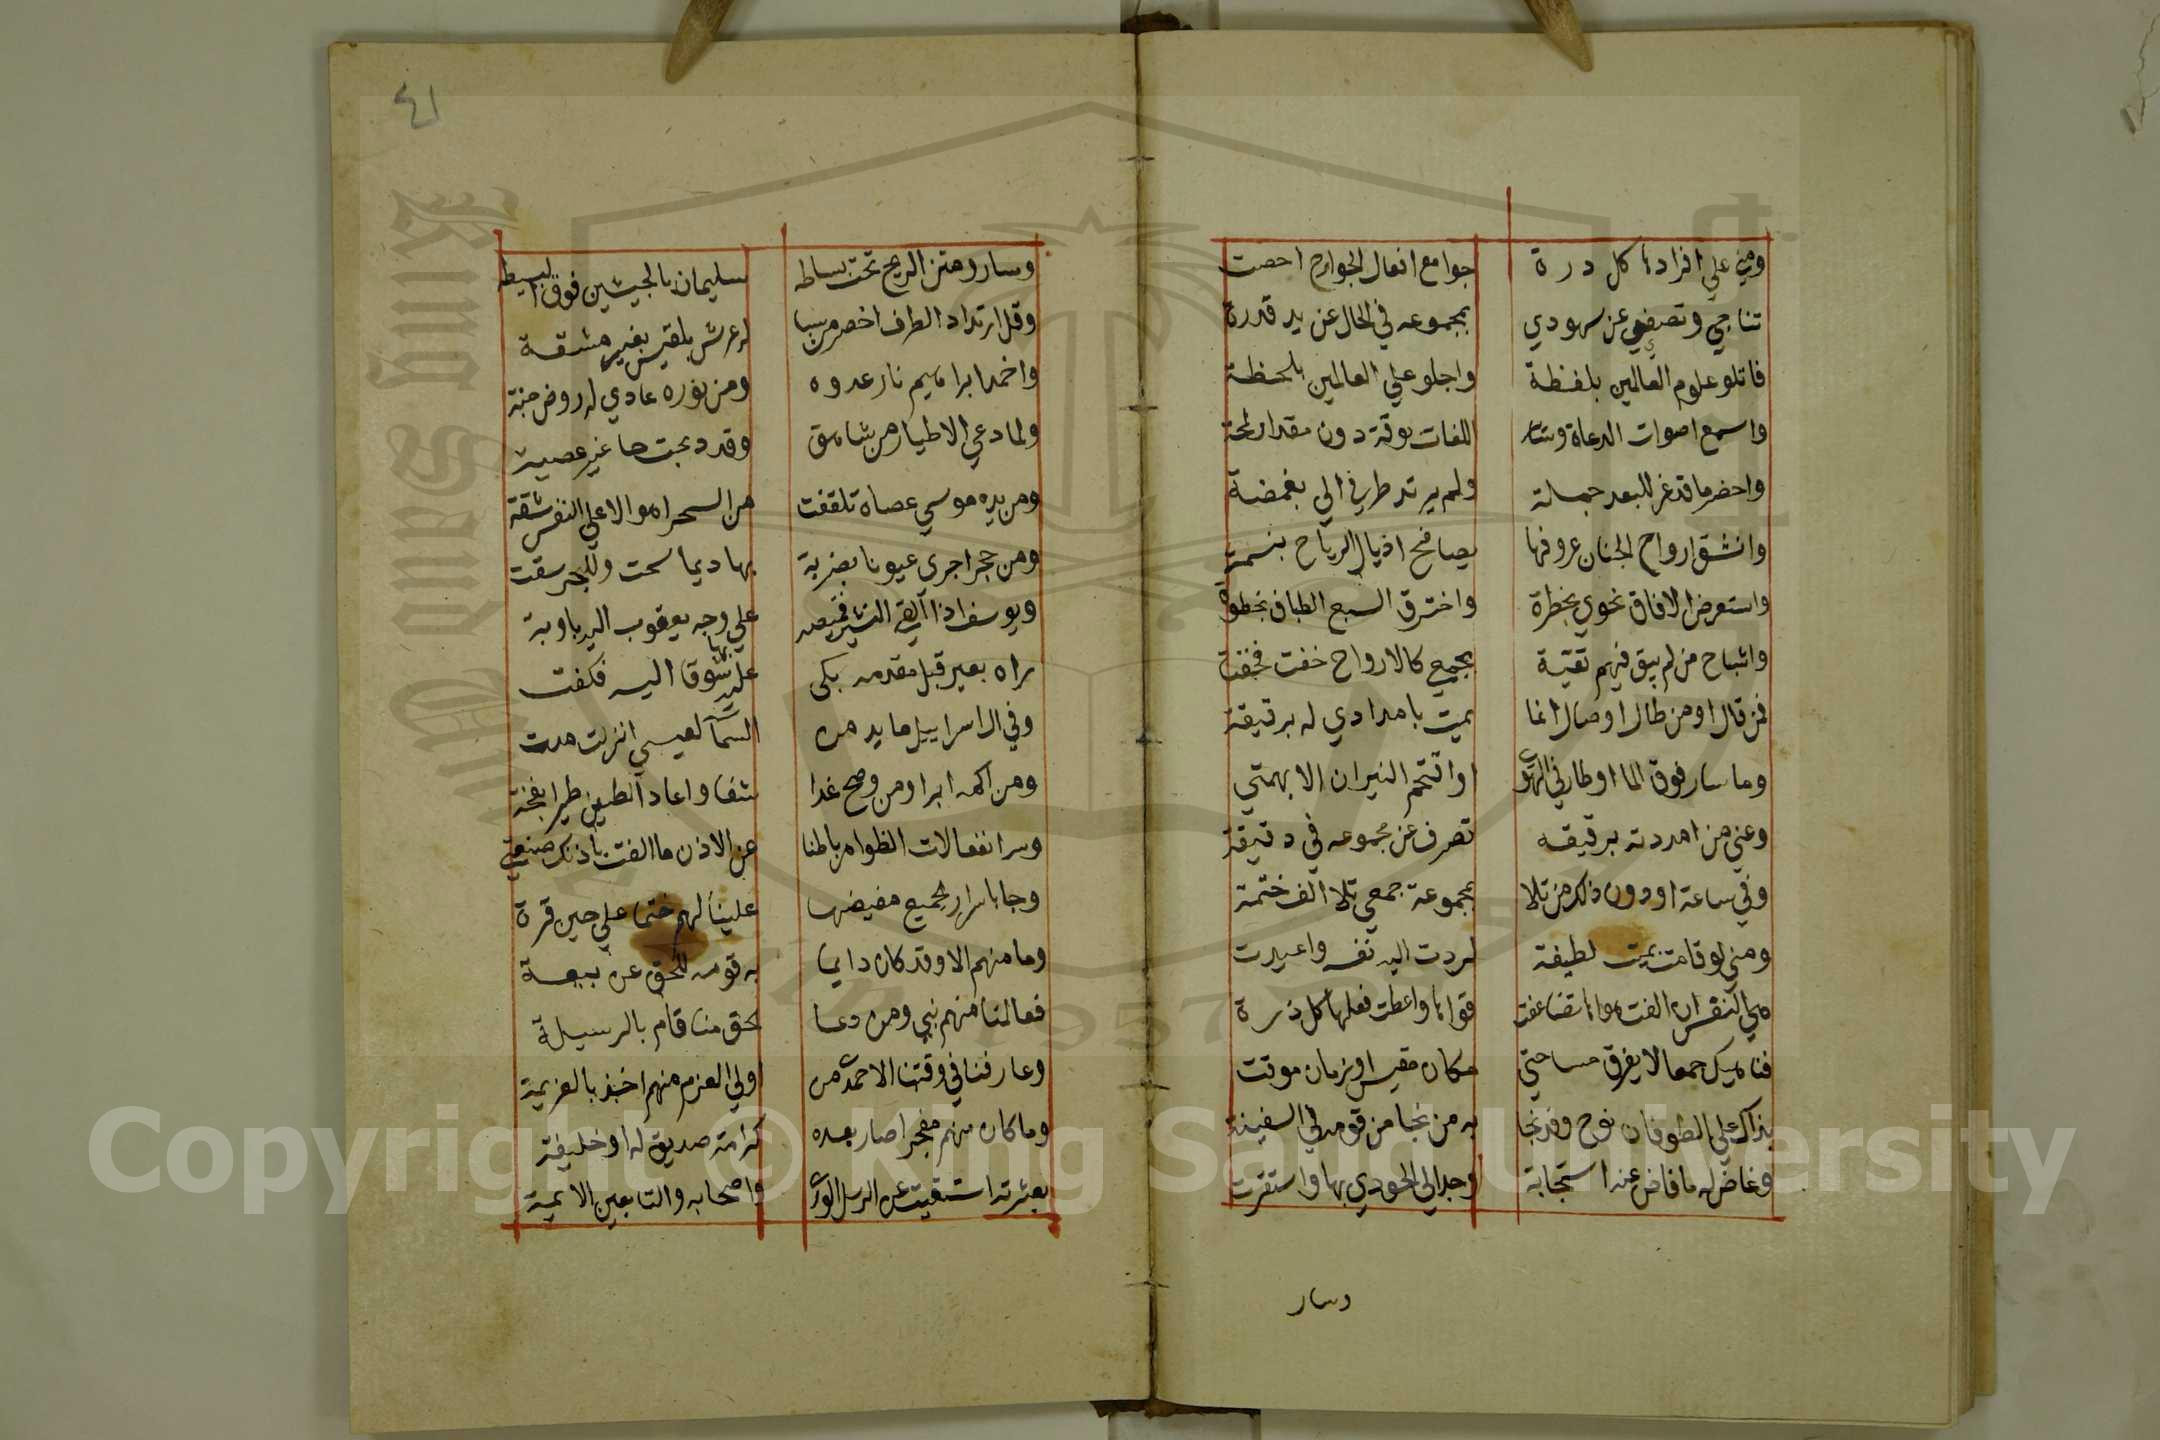 ومني علي افرادها كل درة جوامع افعال الجوارح احصت
تناجي وتصغي عن شهودي بمجموعه في الحال عن يد قدرة
فاتلو علوم العالمين بلفظة واجلو علي العالمين بلحظة
واسمع اصوات الدعاة وسائر اللغات بوقة دون مقدار لمحة
واحضر ما قد عز للبعد حملة ولم يرتد طرفي الي بغمضة
وانشق ارواح الجنان عروفها يصافح اذيال الرياح بنسمة
واستعرض الافاق نحوي بخطرة واخترق السبع الطباق بخطوة
واشباح من لم يبق فيهم تقية بجمعي كالارواح خفت فخفت
فمن قال او من طال او صال انما يمت بامدادي له برقيقة
وما سار فوق الما او طار في الهوي او اقتحم النيران الا بهمتي
وعني من امددته برقيقه تصرف عن مجموعه في دقيقة
وفي ساعة او دون ذلك من تلا بمجموعة جمعي تلا الف ختمة
ومني لو قامت بميت لطيفة لردت اليه نفسه واعيدت
هي النفس ان القت هواها تضاعفت قواها واعطت فعلها كل ذرة
فناهيك جمعا لا بفرق مساحتي مكان مقيس او زمان موقت
بذاك علي الطوفان نوح وقد نجا به من نجا من قومه في السفينة
وغاض له ما فاض عنه استجابة وجد الي الجودي بها واستقرت
وسار
٤١
وسار ومتن الريح تحت بساطه سليمان بالجيشين فوق البسيطة
وقبل ارتداد الطرف احضر من سبا له عرش بلقيس بغير مشقة
واخمد ابراهيم نار عدوه ومن نوره عادي له روض جنة
ولما دعي الاطيار من شاهق وقد ذبحت جا غير عصية
ومن يده موسي عصاه تلقفت من السحر اهوالا علي النفس شقة
ومن حجر اجري عيونا بضربة بها ديما سحت وللبحر شقت
ويوسف اذ القي البشير قميصه علي وجه يعقوب اليه باوبة
راه بعين قبل مقدمه بكي عليه بها شوقا اليه فكفت
وفي ال اسراييل مايدة من السما لعيسي انزلت مدت
ومن اكمه ابرا ومن وضح غدا شفا واعاد الطين طيرا بنفخة
وسر انفعالات الظواهر باطنا عن الاذن ما القت باذنك صيغتي
وجا باسرار الجميع مفيضها علينا لهم ختما علي حين فترة
وما منهم الا وقد كان داعيا به قومه للحق عن تبعة
فعالمنا منهم نبي ومن دعا بحق منا قام بالرسيلة
وعارفنا في وقتنا الاحمدي من اولي العزم منهم اخذ بالعزيمة
وما كان منهم معجزا صار بعده كرامة صديق له او خليفة
بعترته استغنت عن الرسل الوري واصحابه والتابعين الايمة
Copyright © King Saud University
1957